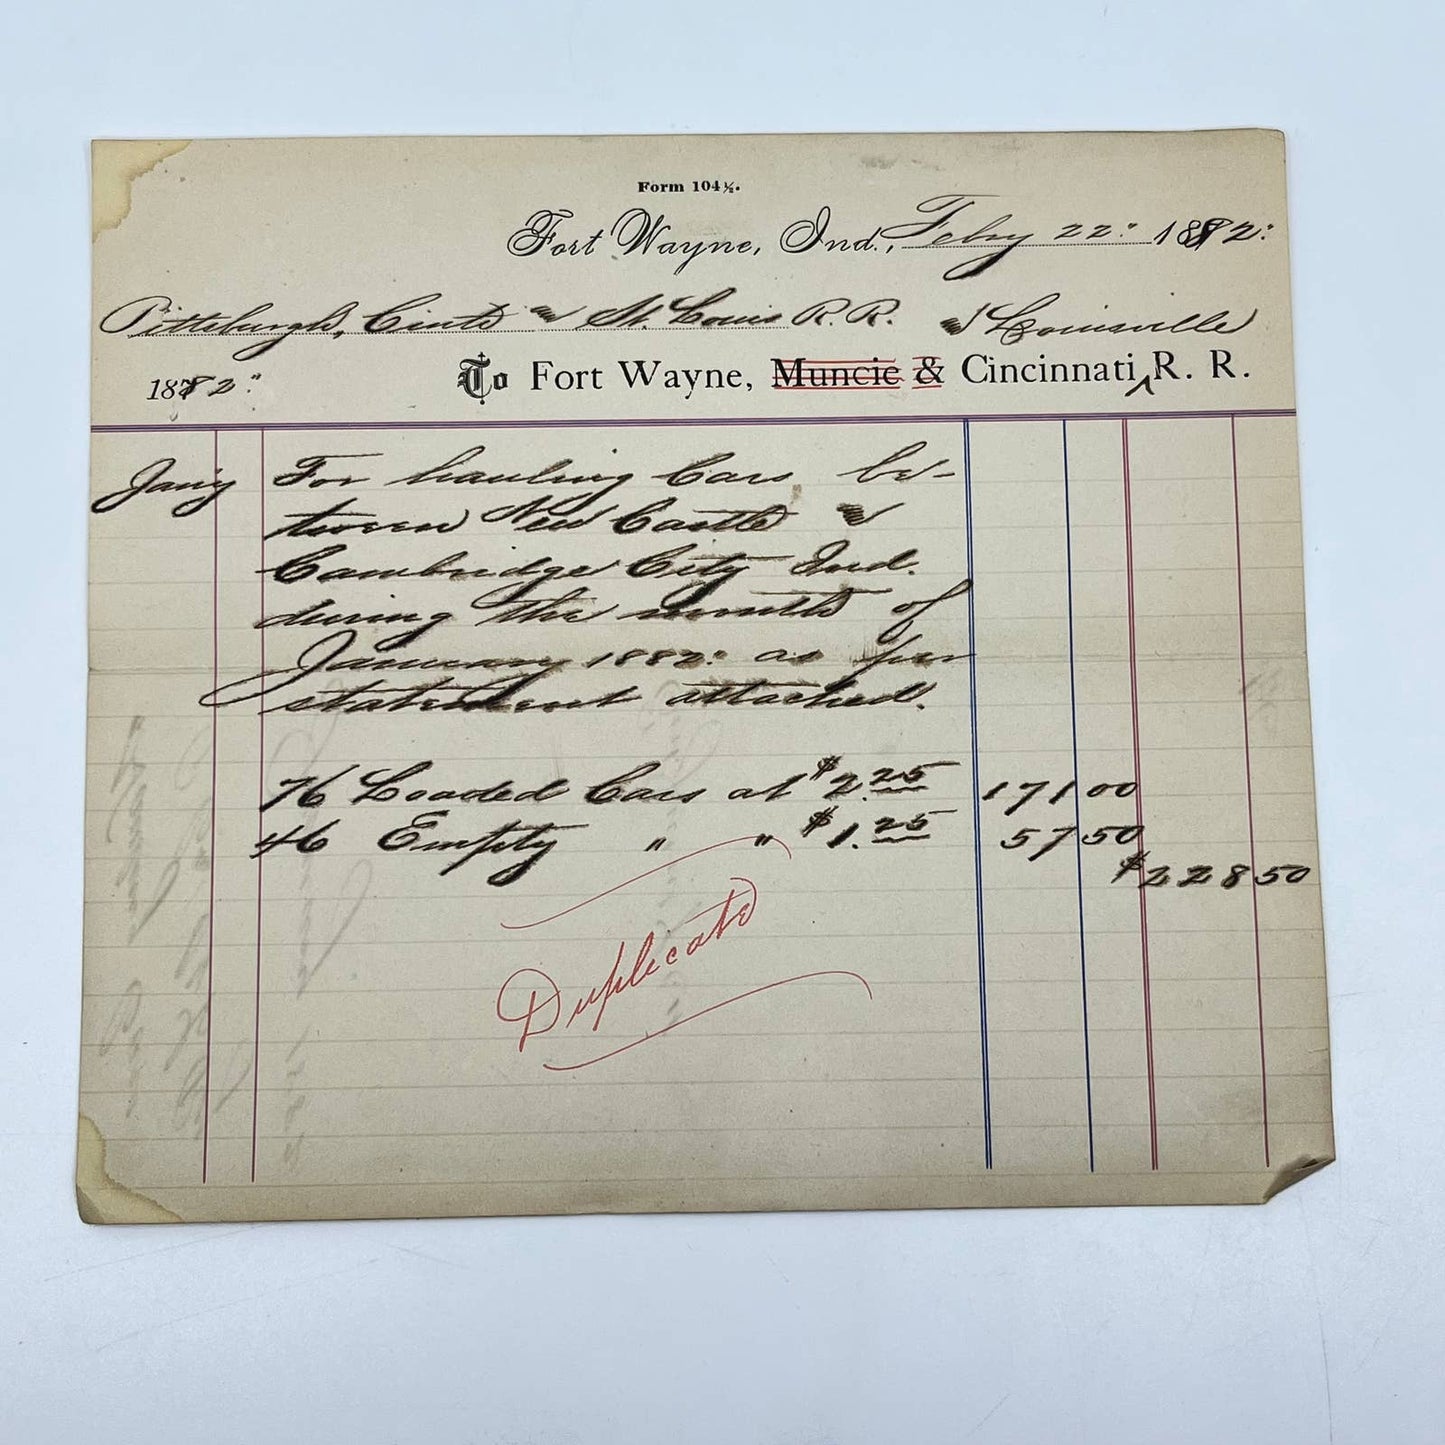 Form 104½.
Fort Wayne, Ind., Feby 22" 1882.
Pittsburgh, Cinti & St. Louis R. R.
& Louisville
1882" To Fort Wayne, Muncie & Cincinnati ^ R. R.
Jan'y For hauling Cars be-
tween New Castle &
Cambridge City Ind.
during the month of
January 1882. as per
statement attached.
76 Loaded Cars at $2.25 171 00
46 Empty " " $1.25 57 50
$228 50
Duplicate